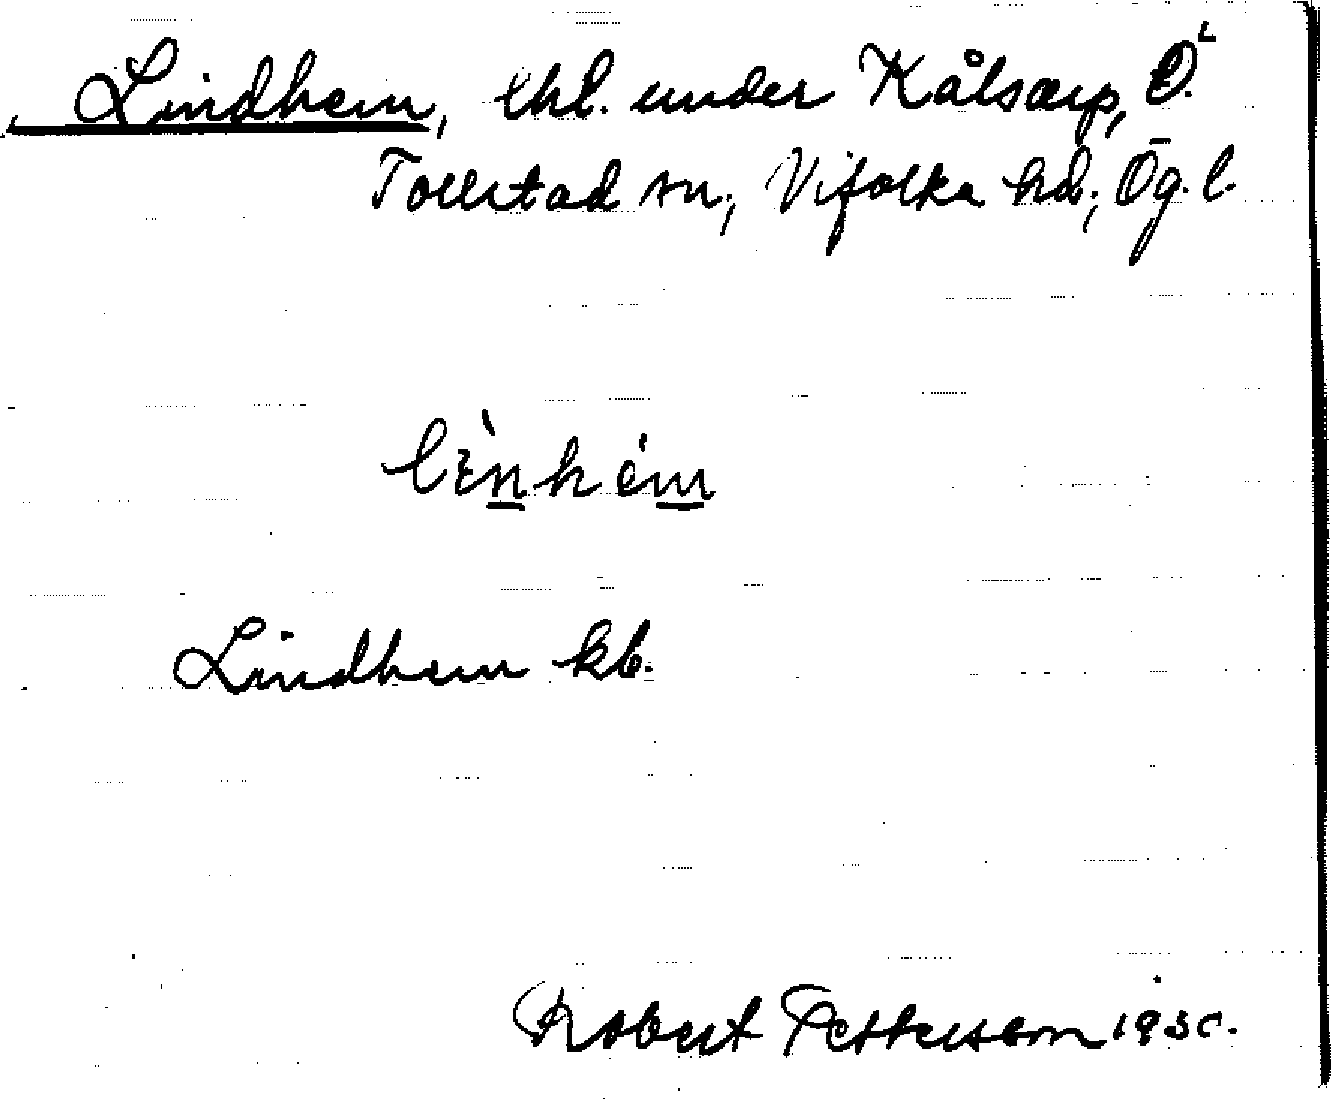 Lindhem, lhl. under Kålsarp, Ö.
Tollstad sn., Vifolka hd., Ög. l.
lìnhém
Lindhem kb.
Robert Pettersson 1930.